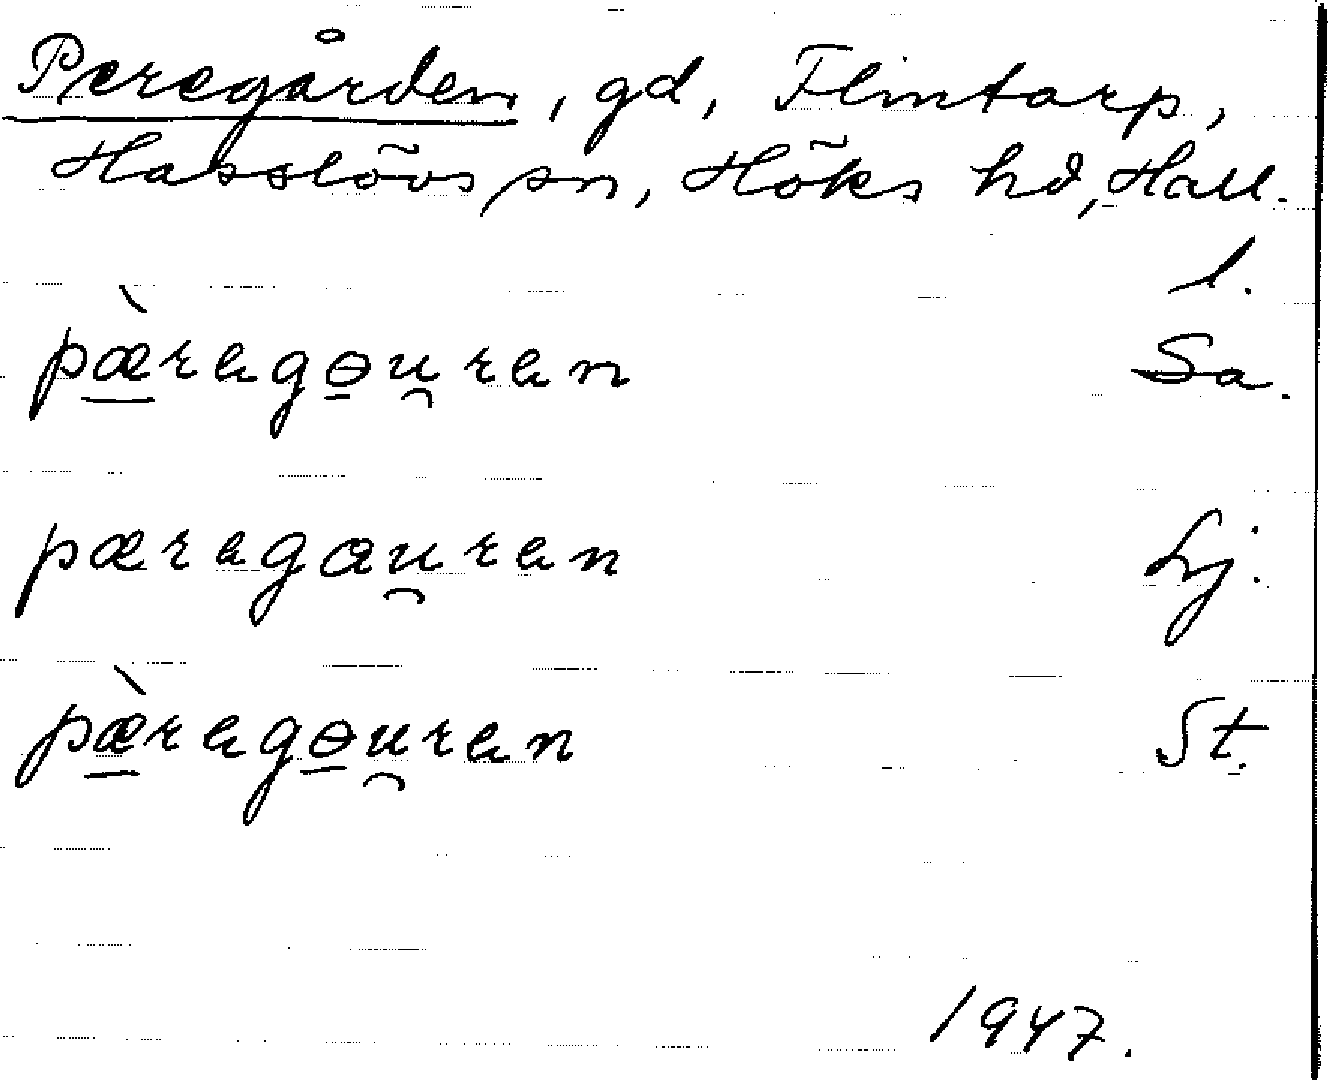 Peregården, gd, Flintarp,
Hasslövs sn, Höks hd, Hall.
l.
pæ̀ragɵu̯ran Sa.
pæragɑu̯ran Lj.
pæ̀ragɵu̯ran St.
1947.